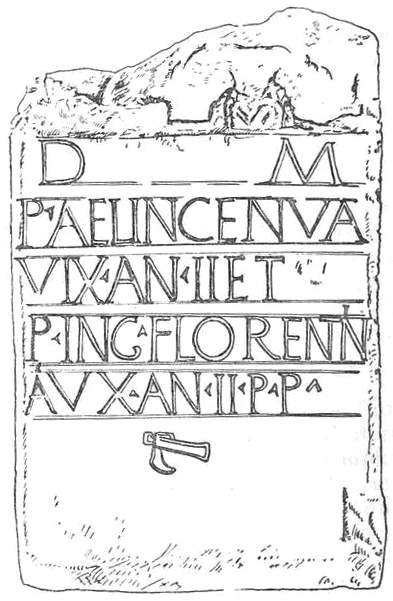 D M
P·AELINCENVA
VIX·AN·II ET
P·ING·FLORENTIN
AVX·AN·II·P·P·